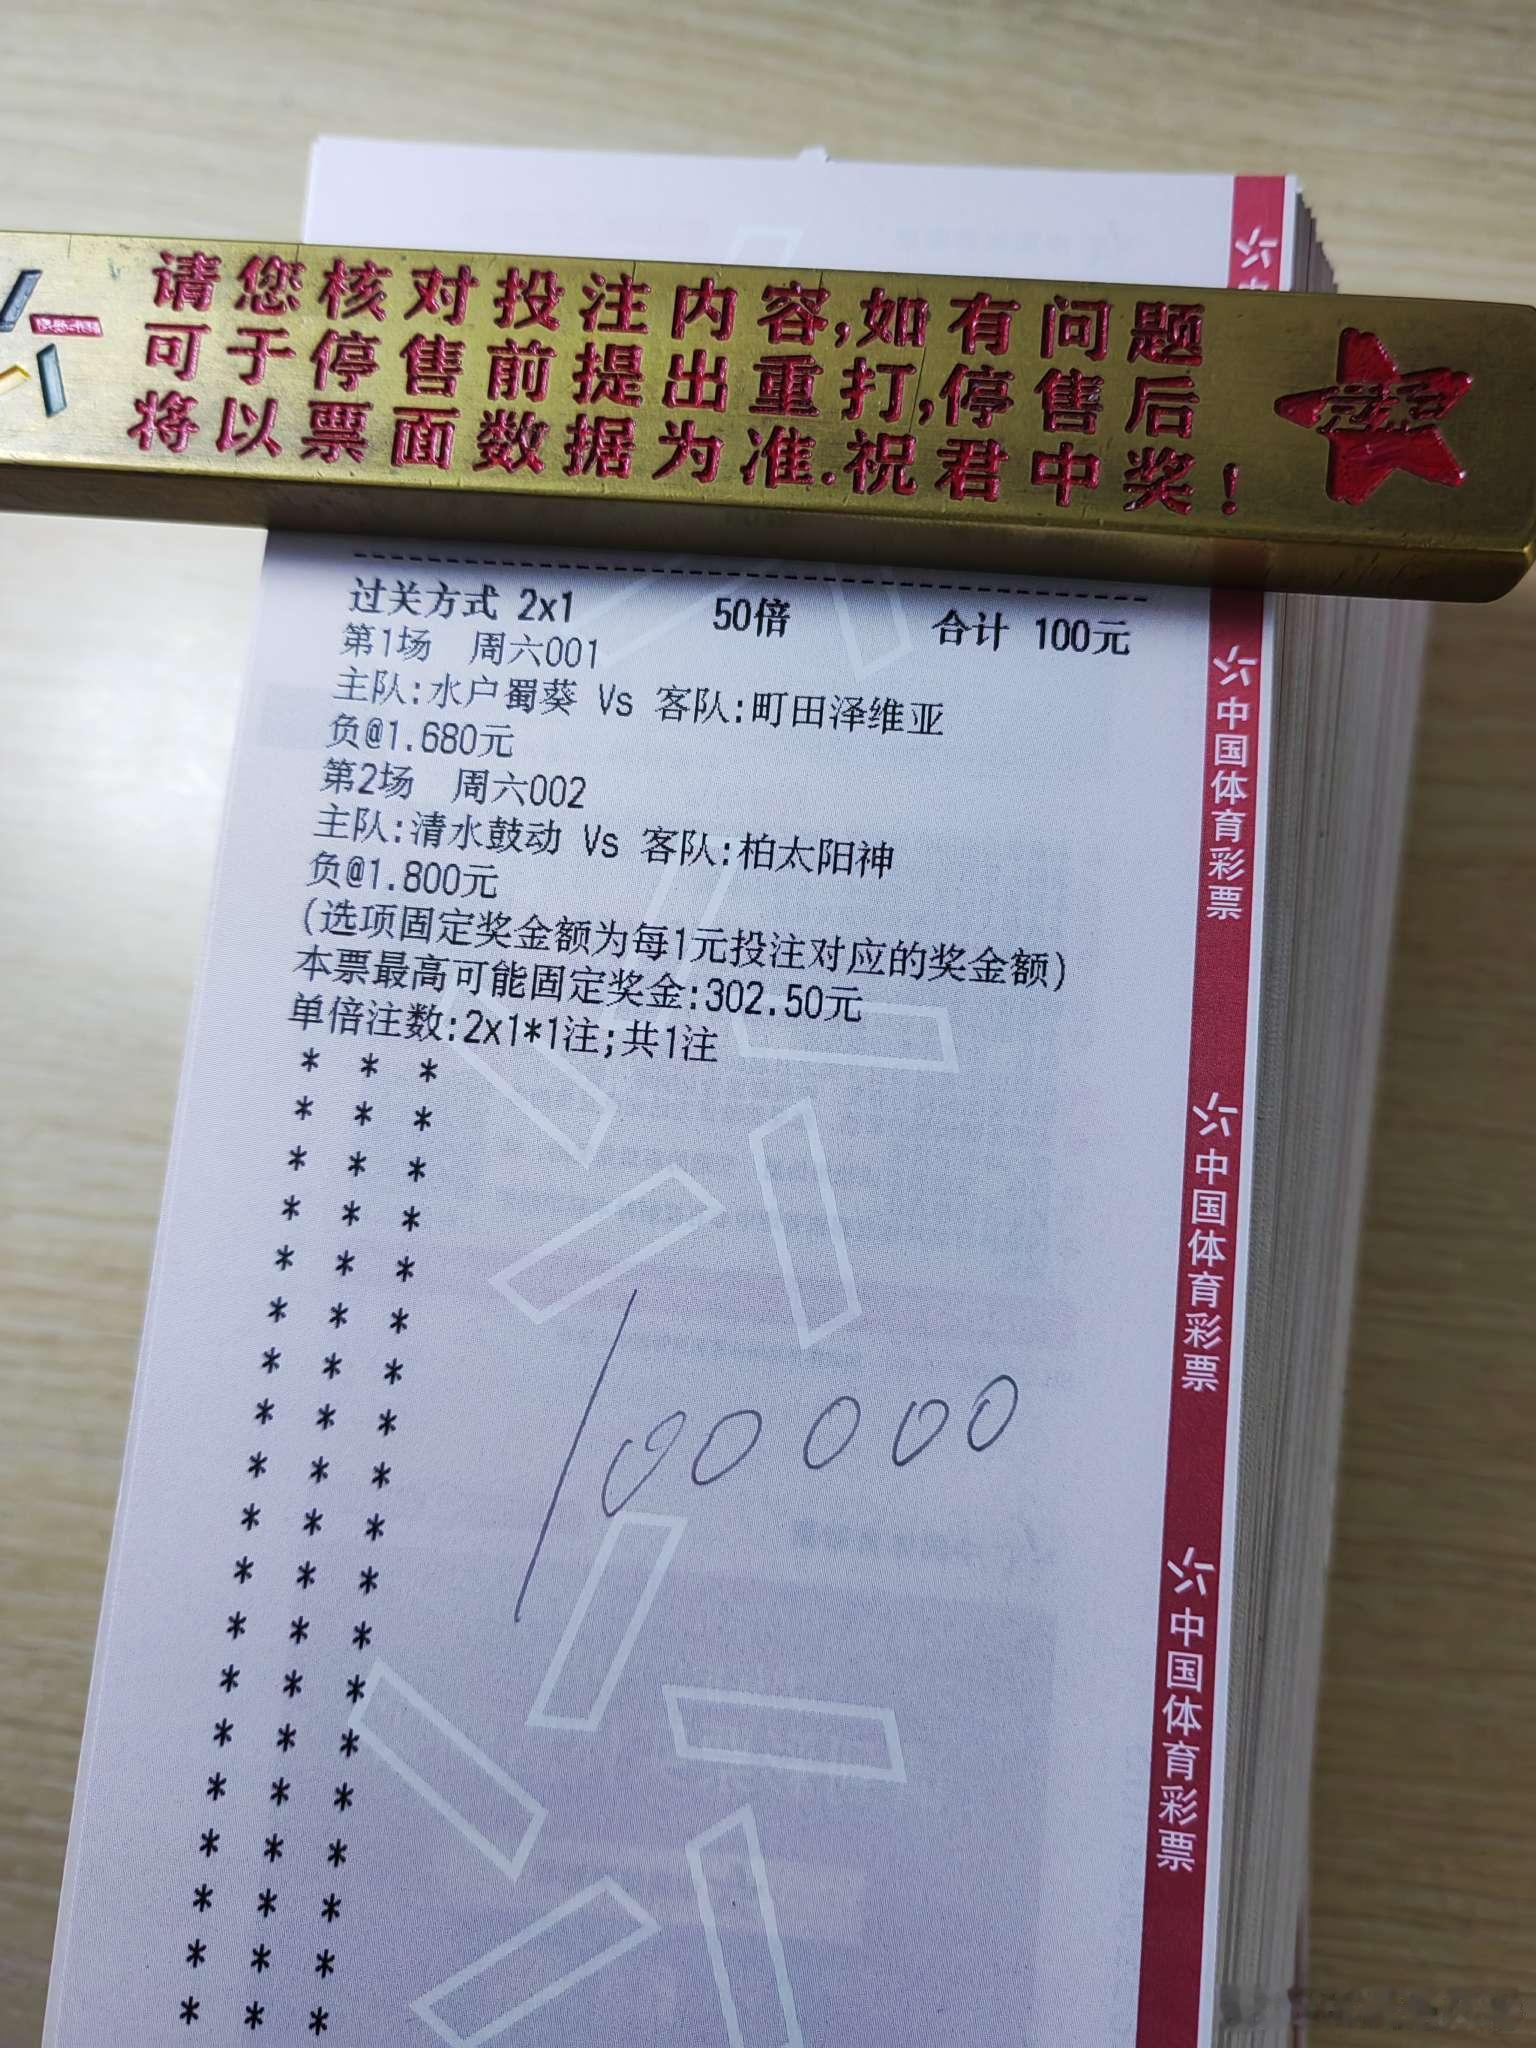 请您核对投注内容,如有问题
可于停售前提出重打,停售后
将以票面数据为准.祝君中奖!
过关方式 2x1 50倍 合计 100元
第1场 周六001
主队:水户蜀葵 Vs 客队:町田泽维亚
负@1.680元
第2场 周六002
主队:清水鼓动 Vs 客队:柏太阳神
负@1.800元
(选项固定奖金额为每1元投注对应的奖金额)
本票最高可能固定奖金:302.50元
单倍注数:2x1*1注;共1注
* * *
* * *
* * *
* * *
* * *
* * *
* * *
* * *
* * *
* * *
* * *
* * *
* * *
* * *
* * *
* * *
* * *
* * *
* * *
100000
中国体育彩票
中国体育彩票
中国体育彩票